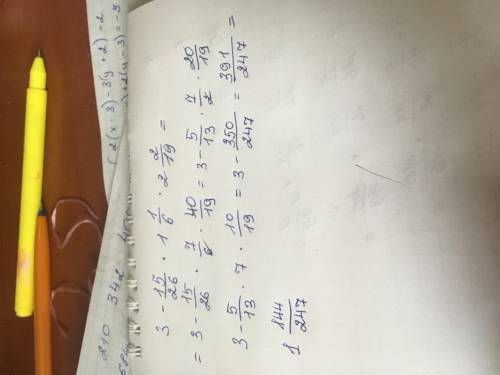 3 - 15/26 · 1 1/6 · 2 2/19 =
= 3 - 15/26 · 7/6 · 40/19 = 3 - 5/13 · 7/2 · 20/19
3 - 5/13 · 7 · 10/19 = 3 - 350/247 = 391/247 =
1 144/247
210 342
2(x - 3) - 3(y + 2) = 2